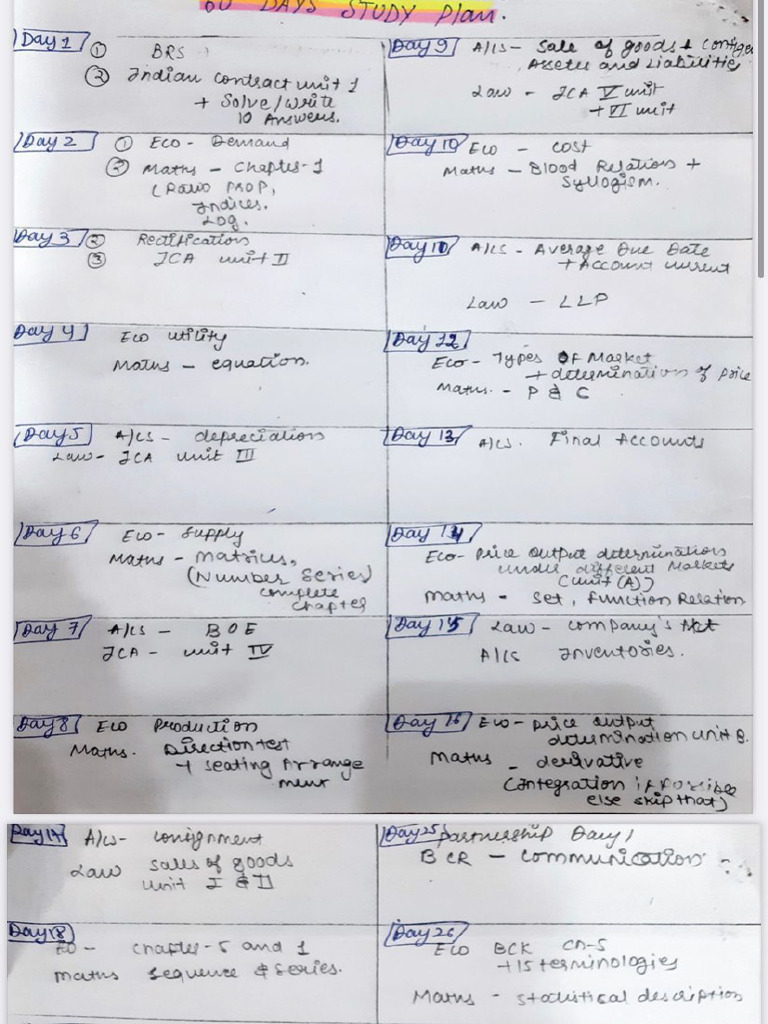 60 DAYS STUDY Plan.
Day 1 ① BRS
② Indian contract unit 1
+ Solve/write
10 Answers.
Day 2 ① Eco - Demand
② Maths - Chapter-1
(Ratio PROP,
Indices,
Log.
Day 3 ② Rectifications
③ ICA unit II
Day 4 Eco utility
Maths - equation.
Day 5 A/cs - depreciation
Law - ICA unit III
Day 6 Eco - Supply
Maths - Matrices,
(Number Series)
complete
chapter
Day 7 A/cs - BOE
ICA - unit IV
Day 8 Eco Production
Maths. Direction test
+ Seating Arrange
ment
Day 9 A/cs - Sale of goods + Contige
Assets and Liabilities
Law - ICA V unit
+ VI unit
Day 10 Eco - cost
Maths - Blood Relations +
Syllogism.
Day 11 A/cs - Average Due Date
+ Account current
Law - LLP
Day 12
Eco - Types of Market
+ determination of price
Maths. - P & C
Day 13 A/cs. Final Accounts
Day 14
Eco - Price Output determinations
under different Markets
(unit (A))
Maths - Set, Function Relation
Day 15 Law - Company's Act
A/cs Inventories.
Day 16 Eco - price output
determination unit B.
Maths - derivative
(Integration if possible
else skip that)
Day 17 A/cs - Consignment
Law Sales of goods
unit I & II
Day 18
Eco - Chapter-5 and 1
Maths Sequence & Series.
Day 25 Partnership Day 1
BCR - Communication
Day 26
Eco BCK Ch-5
+15 terminologies
Maths - Statistical description